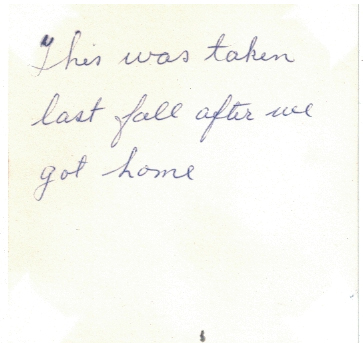 This was taken
last fall after we
got home